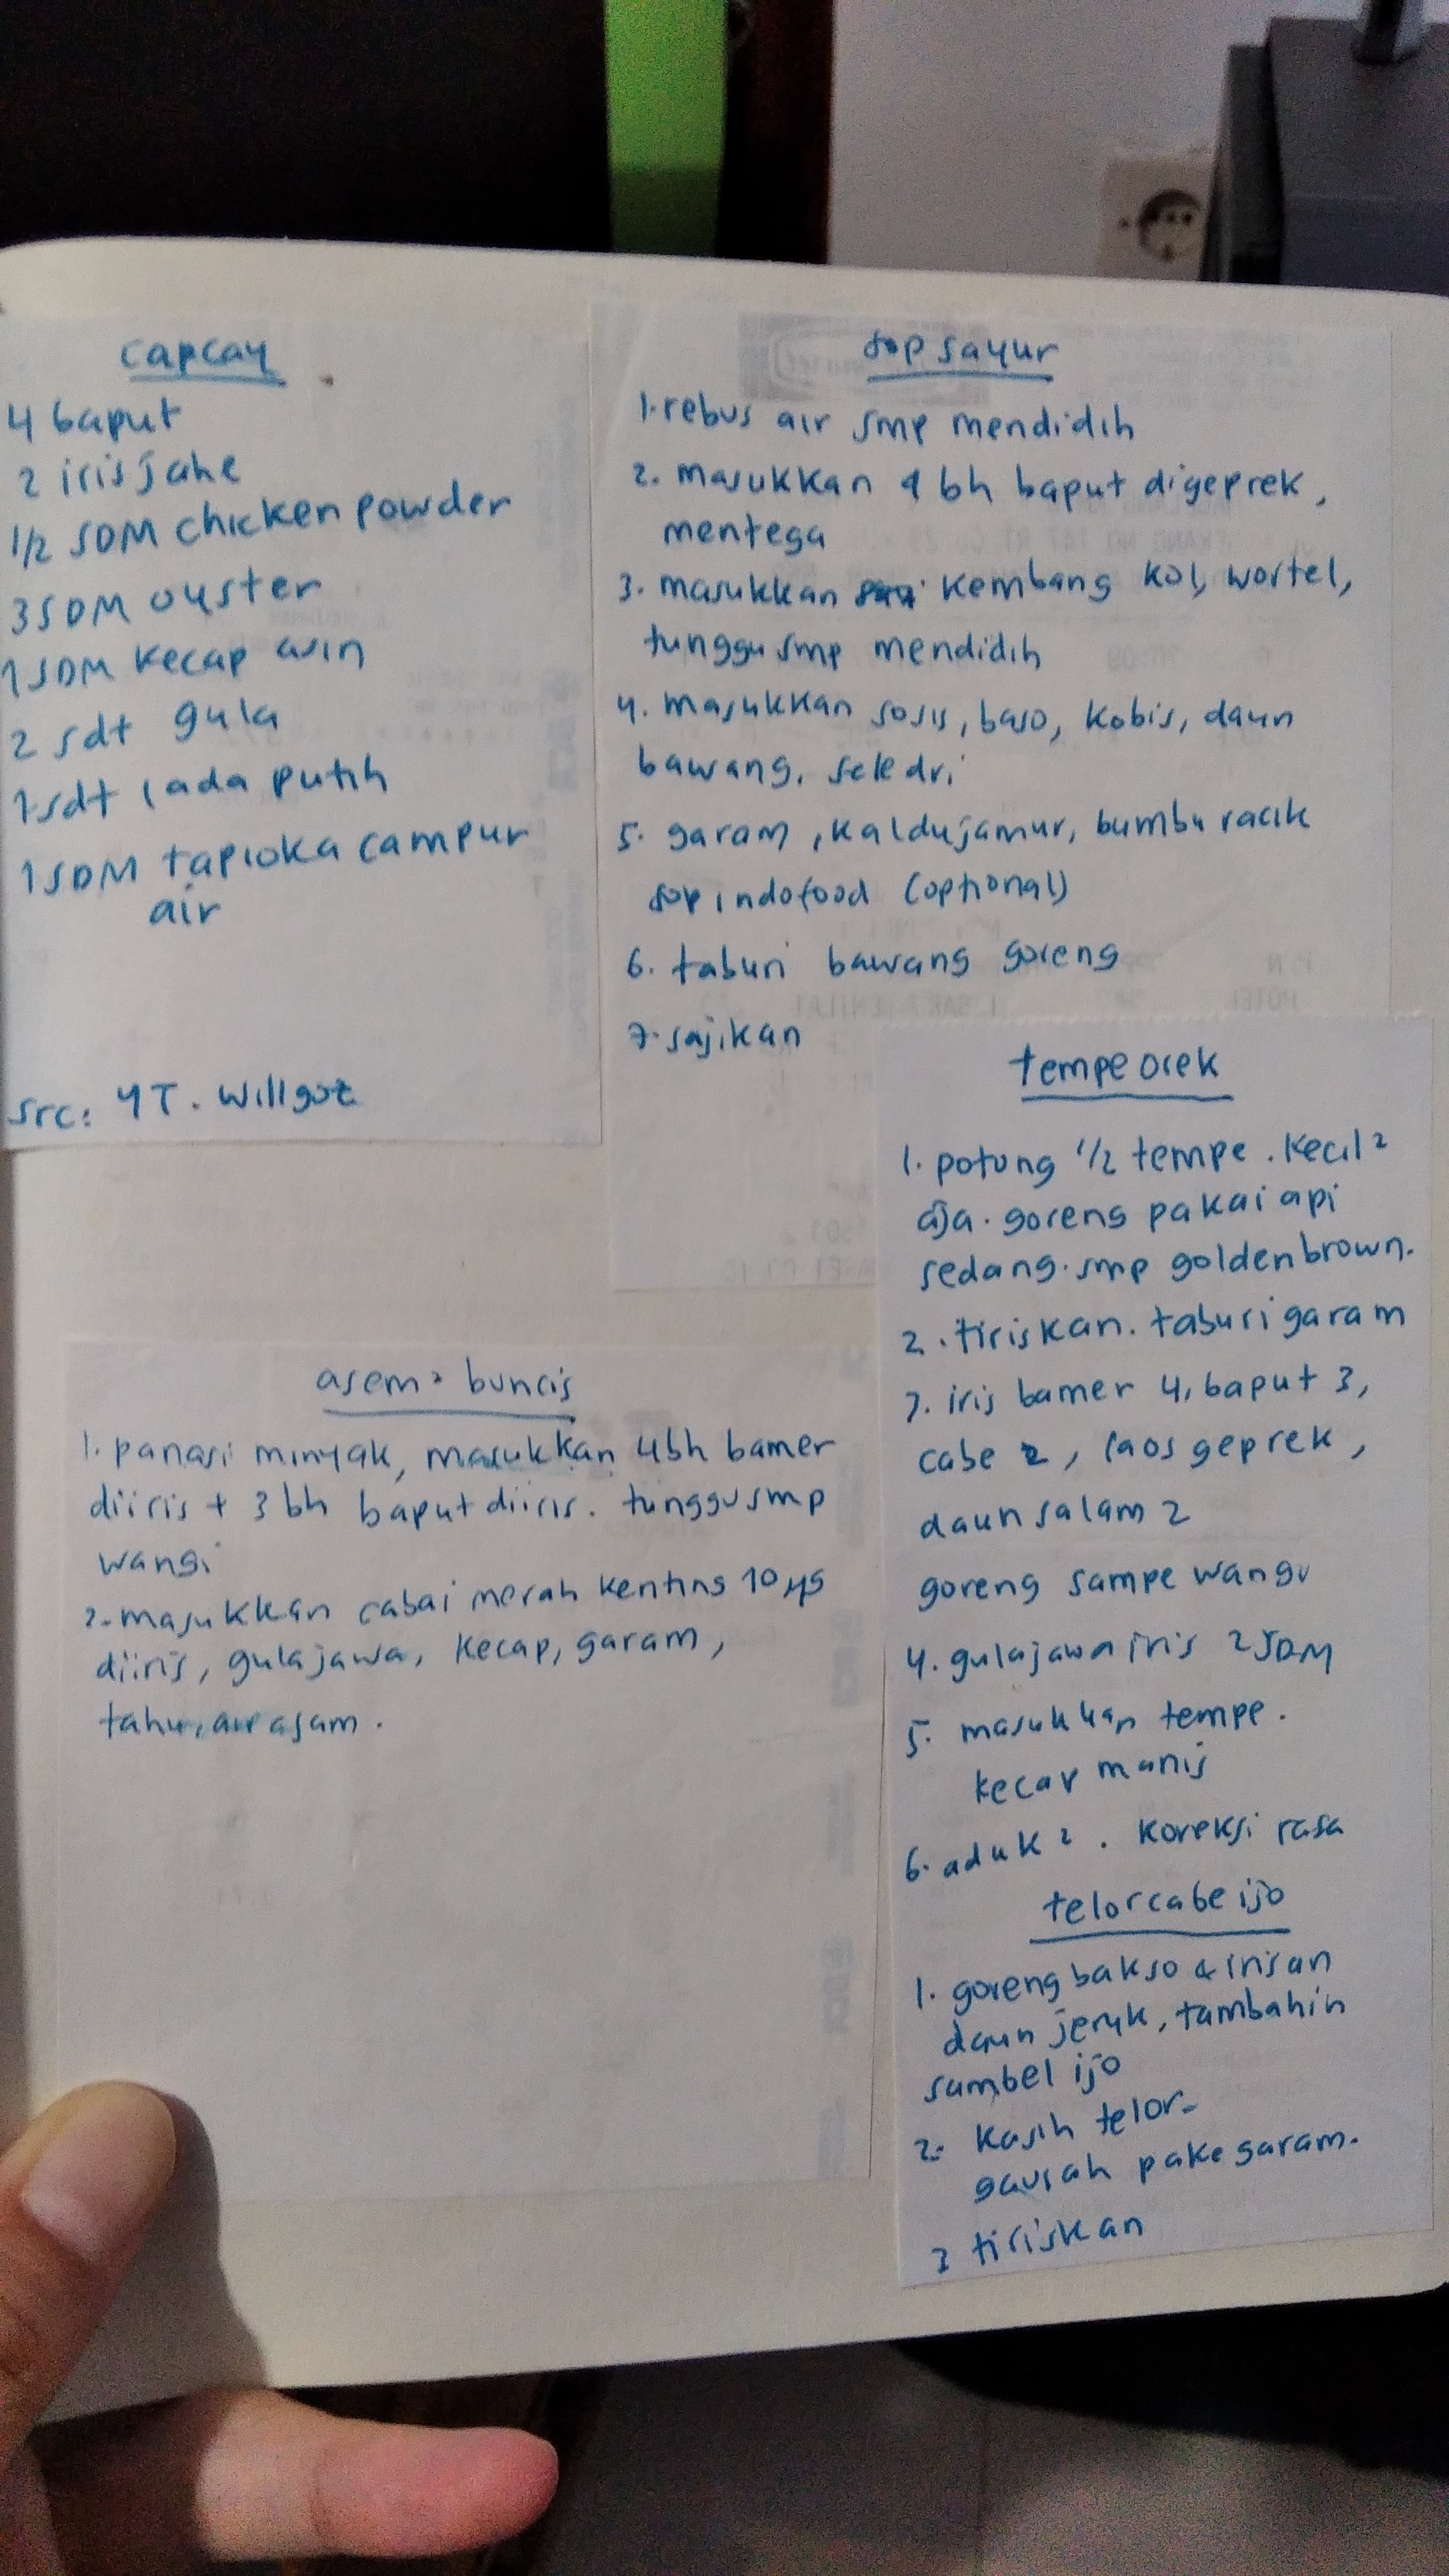 capcay
4 baput
2 iris jahe
1/2 SDM chicken powder
3 SDM oyster
1 SDM kecap asin
2 sdt gula
1 sdt lada putih
1 SDM tapioka campur
air
src: YT. Willgoz
sop sayur
1. rebus air smp mendidih
2. masukkan 4 bh baput digeprek,
mentega
3. masukkan kembang kol, wortel,
tunggu smp mendidih
4. masukkan sosis, baso, kobis, daun
bawang, seledri
5. garam, kaldu jamur, bumbu racik
sop indofood (optional)
6. taburi bawang goreng
7. sajikan
tempe orek
1. potong 1/2 tempe. kecil²
aja. goreng pakai api
sedang. smp golden brown.
2. tiriskan. taburi garam
3. iris bamer 4, baput 3,
cabe 2, laos geprek,
daun salam 2
goreng sampe wangi
4. gula jawa iris 2 SDM
5. masukkan tempe.
kecap manis
6. aduk². koreksi rasa
telor cabe ijo
1. goreng bakso & irisan
daun jeruk, tambahin
sambel ijo
2. kasih telor.
gausah pake garam.
3 tiriskan
asem² buncis
1. panasi minyak, masukkan 4 bh bamer
diiris + 3 bh baput diiris. tunggu smp
wangi
2. masukkan cabai merah kenting 10 yg
diiris, gula jawa, kecap, garam,
tahu, air asam.